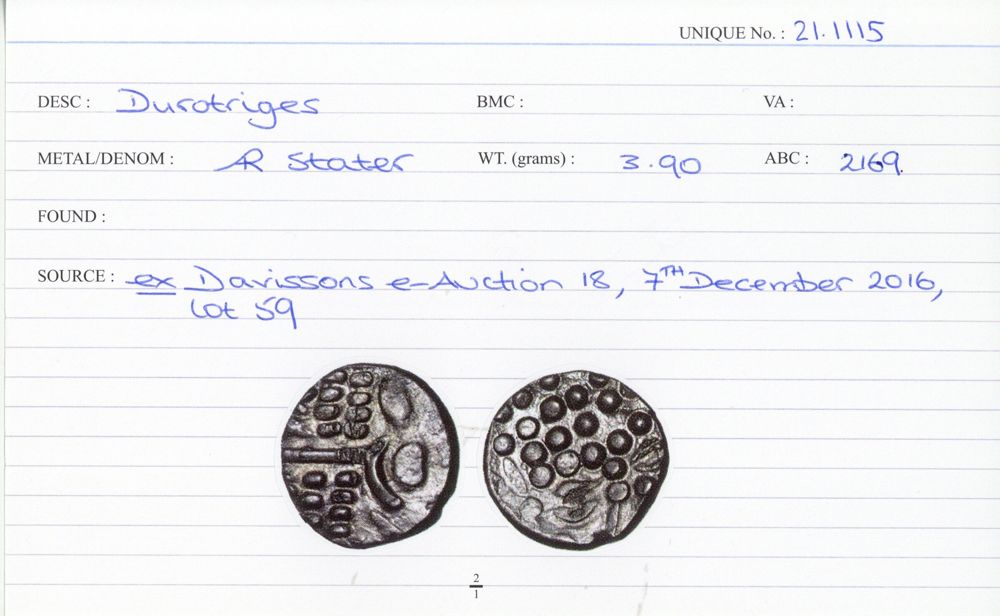 UNIQUE No. : 21.1115
DESC : Durotriges BMC : VA :
METAL/DENOM : AR Stater WT. (grams) : 3.90 ABC : 2169.
FOUND :
SOURCE : ex Davissons e-Auction 18, 7TH December 2016,
Lot 59
2
1